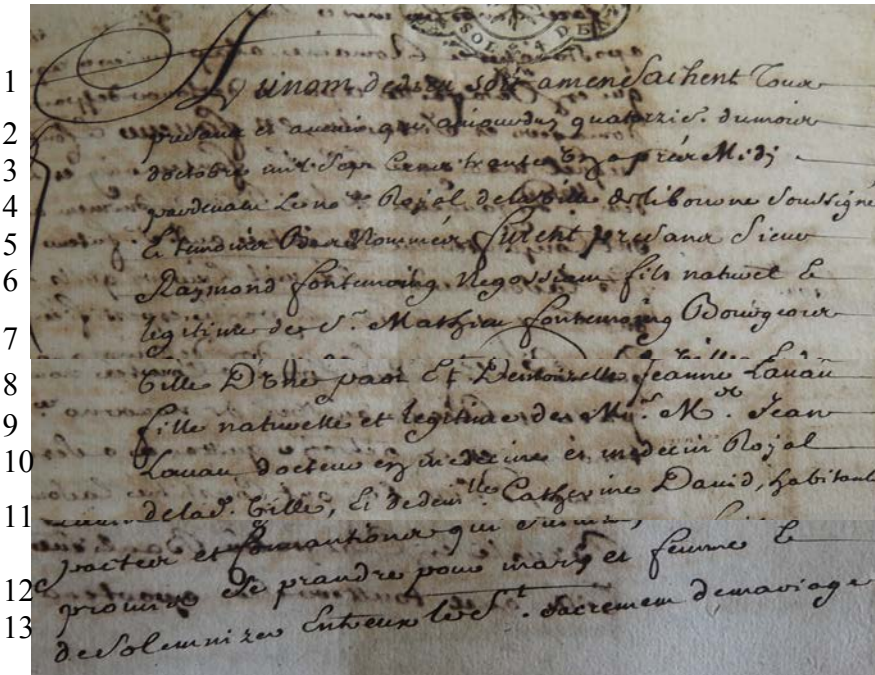 SOLS 4 DE
1 Au nom de dieu soit amen Sachent Tous
2 presens et avenir que aujourduy quatorzie. du mois
3 doctobre mil Sept Cens trente en apres Midy
4 pardevant Le no.re Royal de la ville de libourne Soussigné
5 Et temoins Bas Nommés furent presans Sieur
6 Raymond fontemoing Negossiant fils naturel E
7 legitime de S.r Mathieu fontemoing Bourgeois
8 Ville D'une part Et Demoizelle Jeanne Lavau
9 fille naturelle et legitime de M.r Jean
10 Lavau docteur en medecine et medecin Royal
11 de lad. Ville, Et de dem.lle Catherine David, habitant
pactes et convantions qui
12 promis Se prandre pour mary et femme E
13 de Solemnizer Entre eux le S.t Sacrement de mariage